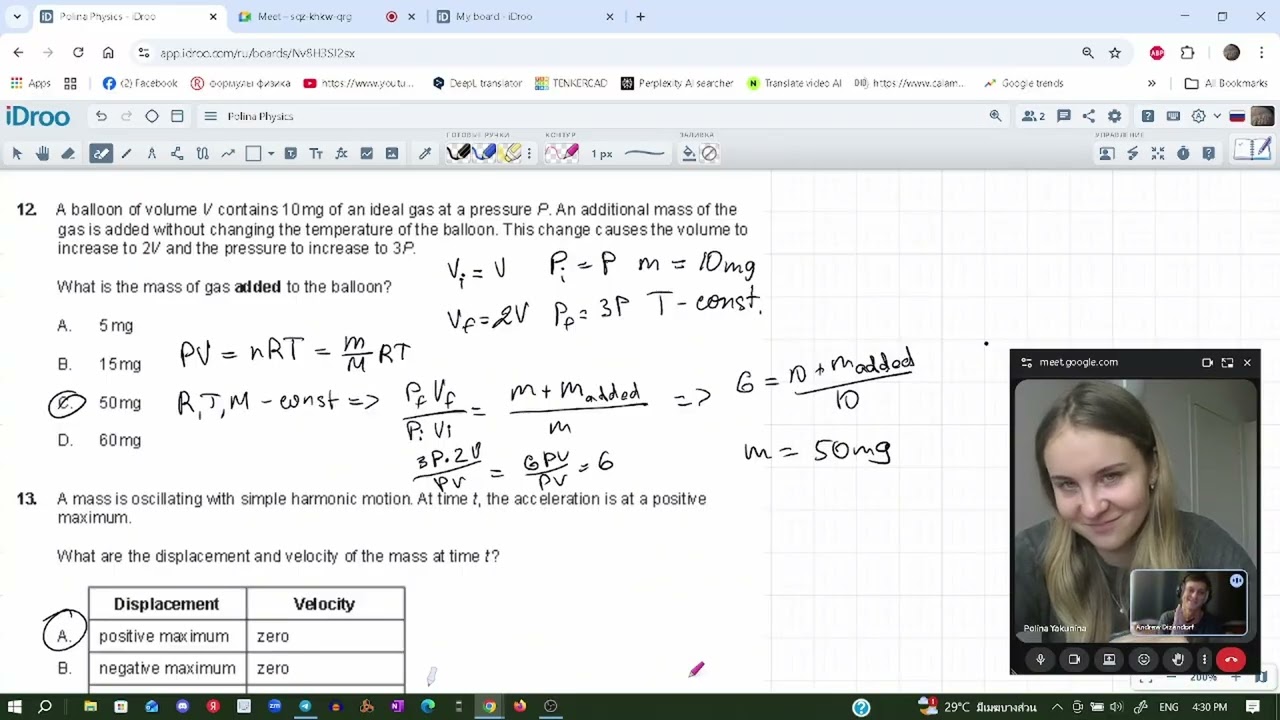 Polina Physics - iDroo
Meet – sqz-khkw-qrg
My board - iDroo
app.idroo.com/ru/boards/Nv8H3Sl2sx
Apps
(2) Facebook
формулы физика
https://www.youtu...
DeepL translator
TENKERCAD
Perplexity AI searcher
Translate video AI
https://www.calam...
Google trends
All Bookmarks
iDroo
Polina Physics
2
ГОТОВЫЕ РУЧКИ
КОНТУР
ЗАЛИВКА
УПРАВЛЕНИЕ
1 px
12. A balloon of volume V contains 10 mg of an ideal gas at a pressure P. An additional mass of the
gas is added without changing the temperature of the balloon. This change causes the volume to
increase to 2V and the pressure to increase to 3P.
Vi = V Pi = P m = 10mg
What is the mass of gas added to the balloon?
Vf = 2V Pf = 3P T - const.
A. 5 mg
PV = nRT = m/M RT
B. 15 mg
C. 50 mg
R,T,M - const => Pf Vf / Pi Vi = m + m added / m => 6 = 10 + m added / 10
D. 60 mg
3P·2V / PV = 6PV / PV = 6
m = 50mg
13. A mass is oscillating with simple harmonic motion. At time t, the acceleration is at a positive
maximum.
What are the displacement and velocity of the mass at time t?
Displacement Velocity
A. positive maximum zero
B. negative maximum zero
meet.google.com
Polina Yakunina
Andrew Dizendorf
200%
29°C
ENG
4:30 PM